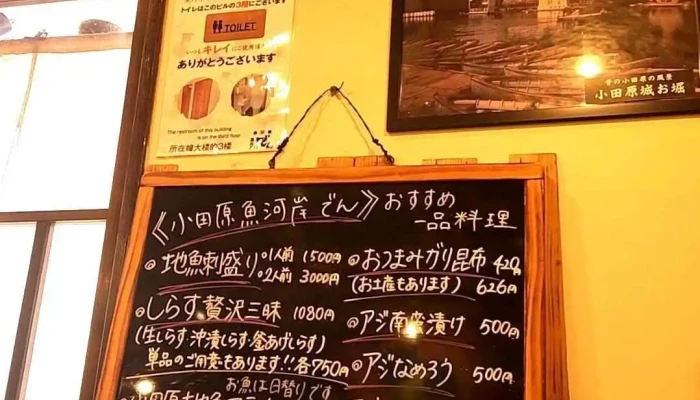 トイレはこのビルの3階にございます
TOILET
いつもキレイにご使用頂き
ありがとうございます
The restroom of this building
is on the third floor
所在幢大楼的3楼
でん
昔の小田原の風景
小田原城お堀
《小田原魚河岸でん》おすすめ
一品料理
地魚刺盛り 1人前 1500円
2人前 3000円
しらす贅沢三昧 1080円
(生しらす・沖漬しらす・釜あげしらす)
単品のご用意もあります!!各750円
お魚は日替りです
おつまみガリ昆布 420円
(お土産もあります) 626円
アジ南蛮漬け 500円
アジなめろう 500円